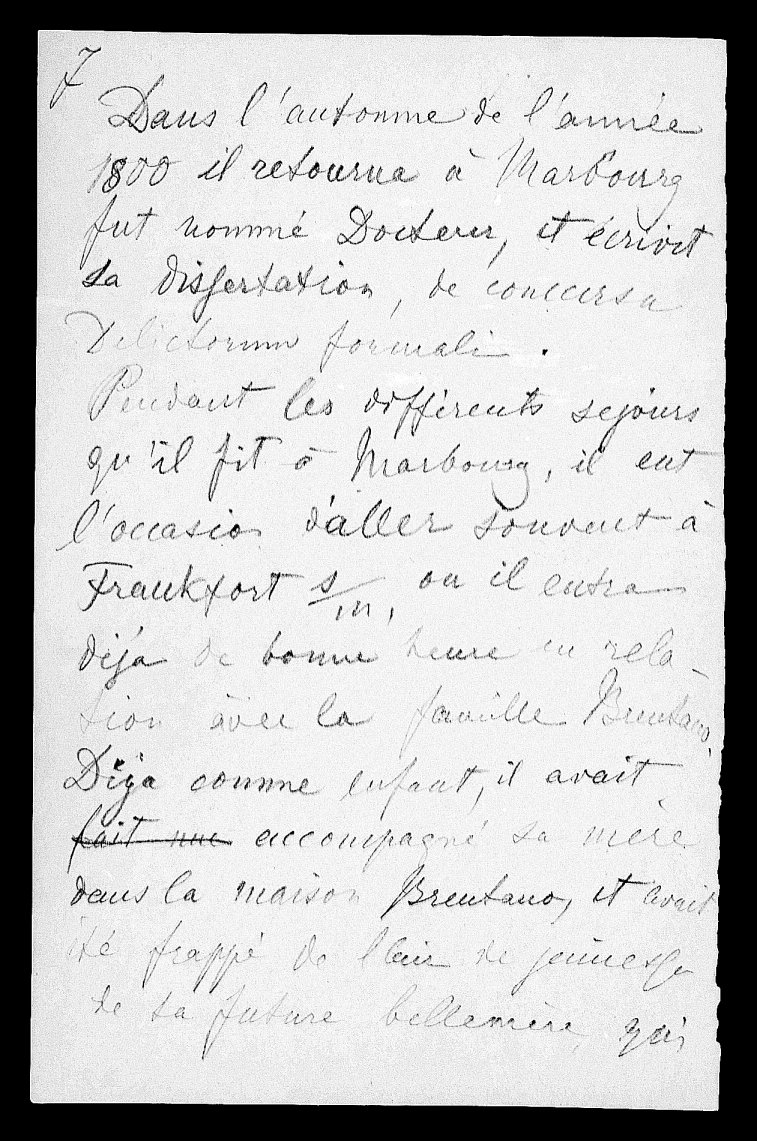 7
Dans l'automne de l'année
1800 il retourna à Marbourg
fut nommé Docteur, et écrivit
sa dissertation, de concursu
Delictorum formali.
Pendant les différents sejours
qu'il fit à Marbourg, il eut
l'occasion d'aller souvent à
Frankfort s/m, ou il entra
déja de bonne heure en rela-
tion avec la famille Brentano.
Déja comme enfant, il avait
fait une accompagné sa mère
dans la maison Brentano, et avait
été frappé de l'air de jeunesse
de sa future bellemère, qui